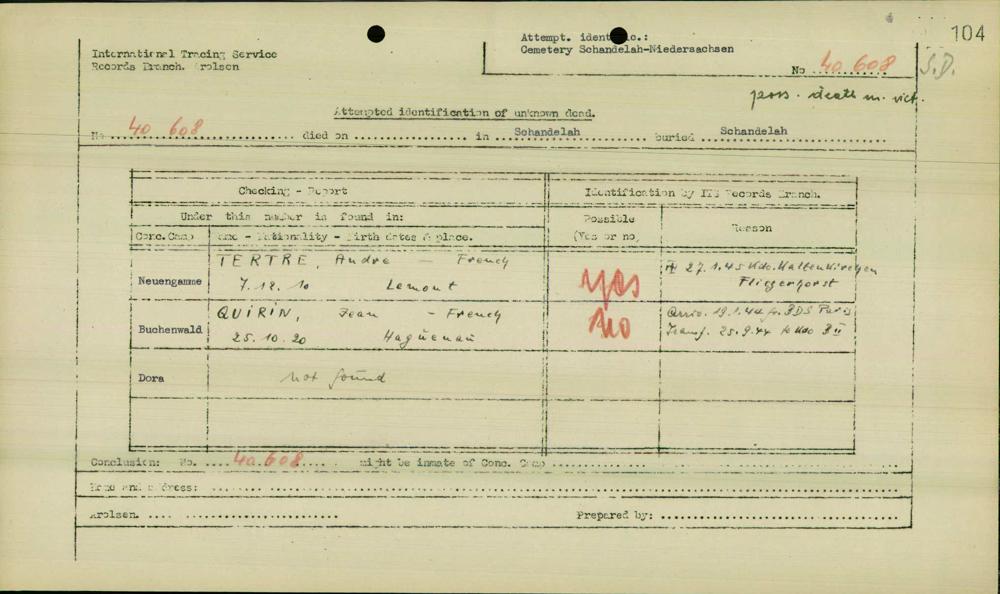 104
International Tracing Service
Records Branch. Arolsen
Attempt. ident. No.:
Cemetery Schandelah-Niedersachsen
No 40 608
S.D.
poss. death m. vict.
Attempted identification of unknown dead.
No 40 608 died on in Schandelah buried Schandelah
Checking - Report
Identification by ITS Records Branch.
Under this number is found in:
Possible
(Yes or no)
Reason
Conc.Camp
Name - Nationality - Birth dates & place.
Neuengamme
TERTRE, Andre - French
7.12.10 Lemont
yes
27.1.45 Kdo. Kaltenkirchen
Fliegerhorst
Buchenwald
QUIRIN, Jean - French
25.10.20 Hagüenau
No
Arriv. 19.1.44 fr. BDS Paris
Transf. 25.9.44 to Kdo B II
Dora
not found
Conclusion: No. 40.608 might be inmate of Conc. Camp
Name and address:
Arolsen.
Prepared by: